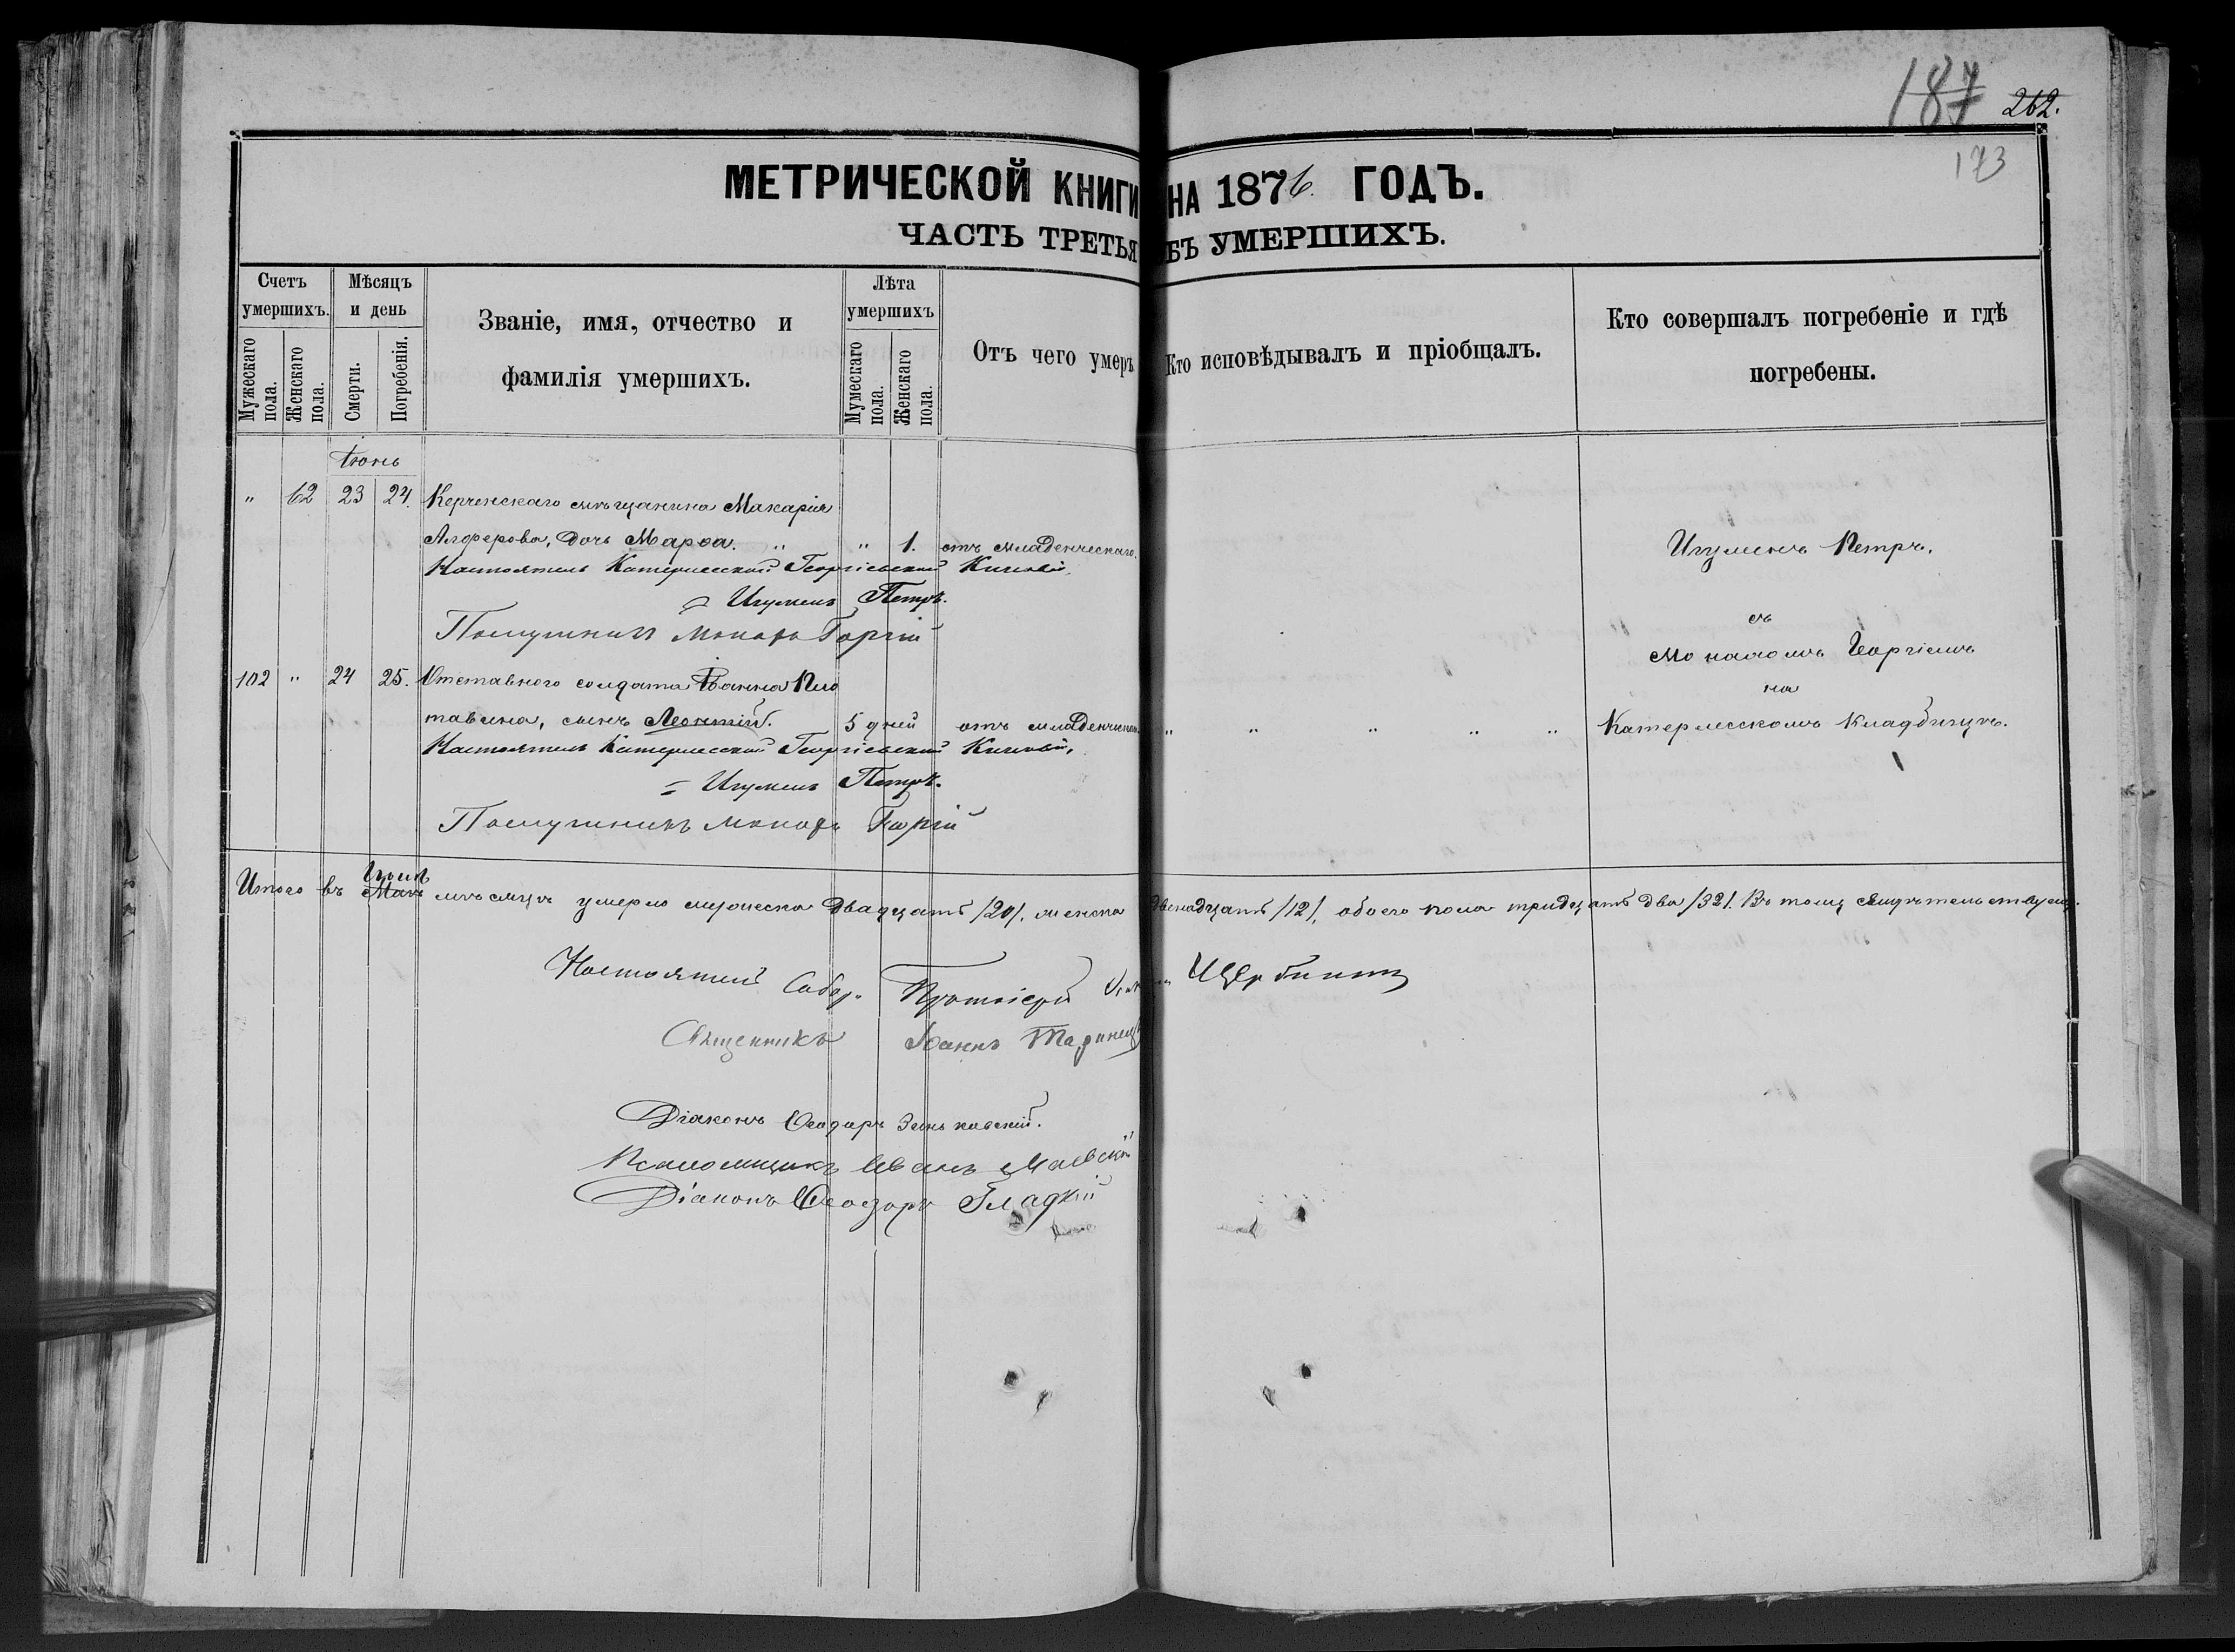 187 262.
173
МЕТРИЧЕСКОЙ КНИГИ НА 1876. ГОДЪ.
ЧАСТЬ ТРЕТЬЯ БЪ УМЕРШИХЪ.
Счетъ умершихъ.
Мужескаго пола.
Женскаго пола.
Мѣсяцъ и день
Смерти.
Погребенія.
Званіе, имя, отчество и
фамилія умершихъ.
Лѣта умершихъ
Мумескаго пола.
Женскаго пола.
Отъ чего умеръ
Кто исповѣдывалъ и пріобщалъ.
Кто совершалъ погребеніе и гдѣ
погребены.
Іюнь
" 62 23 24. Керченскаго мѣщанина Макарія
Алферова, дочь Марѳа. " " 1. отъ младенческаго.
Настоятель Катерлесской Георгіевской Киновіи,
Игуменъ Петръ.
Послушникъ Монахъ Горгій
Игуменъ Петръ,
съ
Монахомъ Георгіемъ
на
Катерлесскомъ Кладбищѣ.
102 " 24 25. Отставного солдата Іоанна
сынъ Леонтій. 5 дней отъ " " " " "
Настоятель Катерлесской Георгіевской Киновіи,
Игуменъ Петръ.
Послушникъ Монахъ Горгій
Іюнѣ
Итого въ Маѣ мѣсяцѣ умерло мужеска двадцать /20/, женска двенадцать /12/, обоего пола тридцать два /32/. Въ томъ свидѣтельствуемъ.
Настоятель Собор. Протоіерей Щербинин
Священникъ Іоаннъ
Діаконъ Ѳеодоръ Зеньковскій.
Псаломщикъ Иванъ Маевскій
Діаконъ Ѳеодоръ Гладкій